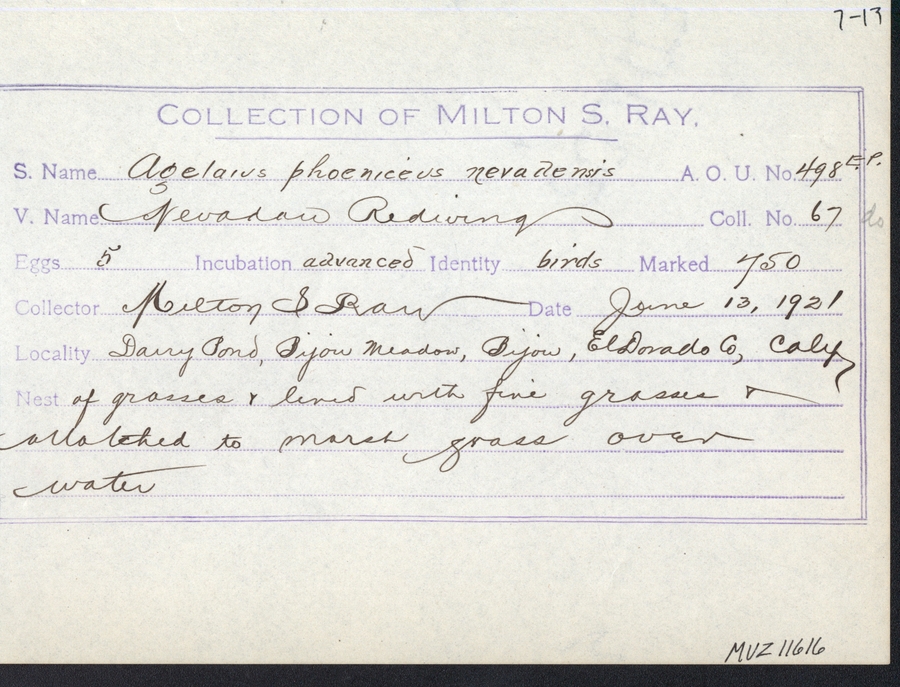 7-13
COLLECTION OF MILTON S. RAY.
S. Name Agelaius phoeniceus nevadensis A. O. U. No. 498 E.P.
V. Name Nevadan Redwing Coll. No. 67 do
Eggs 5 Incubation advanced Identity birds Marked 750
Collector Milton S Ray Date June 13, 1921
Locality Dairy Pond, Bijou Meadow, Bijou, El Dorado Co, Calif
Nest of grasses & lined with fine grasses &
attatched to marsh grass over
water
MVZ 11616